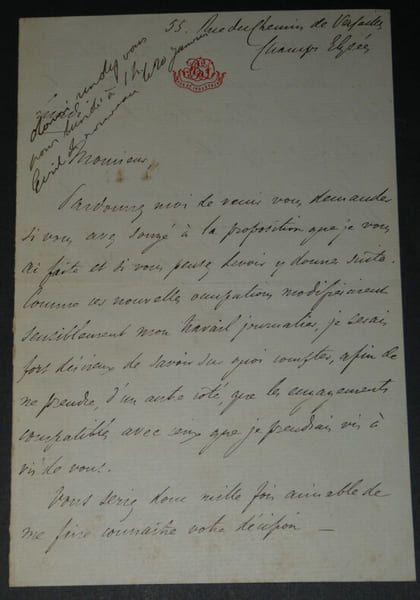 55, Rue du Chemin de Versailles
Champs Elysées
rendez vous
pour lundi à 1h
Ecrit de nouveau le 20 Janvier
Monsieur,
Pardonnez moi de venir vous demander
si vous avez songé à la proposition que je vous
ai faite et si vous pensez devoir y donner suite.
Comme ces nouvelles occupations modifieraient
sensiblement mon travail journalier, je serais
fort désireux de savoir sur quoi compter, afin de
ne prendre, d'un autre côté, que les engagements
compatibles avec ceux que je prendrais vis à
vis de vous.
Vous seriez donc mille fois aimable de
me faire connaître votre décision —